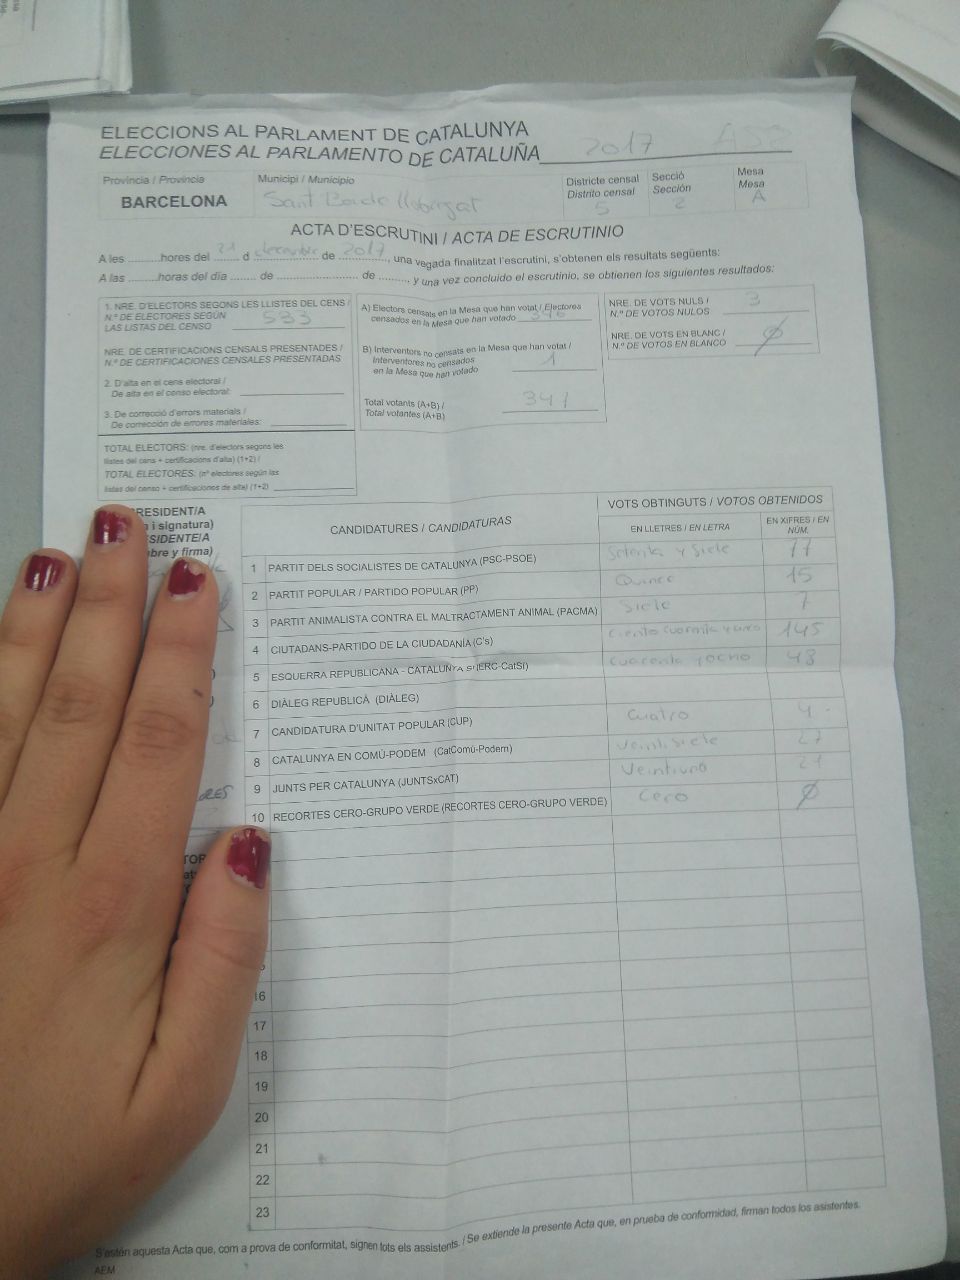 ELECCIONS AL PARLAMENT DE CATALUNYA
ELECCIONES AL PARLAMENTO DE CATALUÑA 2017
Província / Provincia
BARCELONA
Municipi / Municipio
Sant Boi de Llobregat
Districte censal
Distrito censal
5
Secció
Sección
2
Mesa
Mesa
A
ACTA D'ESCRUTINI / ACTA DE ESCRUTINIO
A les ..........hores del 21 d desembre de 2017, una vegada finalitzat l'escrutini, s'obtenen els resultats següents:
A las ..........horas del día ........ de ........................ de ........, y una vez concluido el escrutinio, se obtienen los siguientes resultados:
1. NRE. D'ELECTORS SEGONS LES LLISTES DEL CENS /
N.º DE ELECTORES SEGÚN
LAS LISTAS DEL CENSO 533
NRE. DE CERTIFICACIONS CENSALS PRESENTADES /
N.º DE CERTIFICACIONES CENSALES PRESENTADAS
2. D'alta en el cens electoral /
De alta en el censo electoral:
3. De correcció d'errors materials /
De corrección de errores materiales:
TOTAL ELECTORS: (nre. d'electors segons les
llistes del cens + certificacions d'alta) (1+2) /
TOTAL ELECTORES: (nº electores según las
listas del censo + certificaciones de alta) (1+2)
A) Electors censats en la Mesa que han votat / Electores
censados en la Mesa que han votado 346
B) Interventors no censats en la Mesa que han votat /
Interventores no censados
en la Mesa que han votado 1
Total votants (A+B) /
Total votantes (A+B) 347
NRE. DE VOTS NULS /
N.º DE VOTOS NULOS 3
NRE. DE VOTS EN BLANC /
N.º DE VOTOS EN BLANCO Ø
RESIDENT/A
i signatura)
SIDENTE/A
bre y firma)
CANDIDATURES / CANDIDATURAS
VOTS OBTINGUTS / VOTOS OBTENIDOS
EN LLETRES / EN LETRA
EN XIFRES / EN
NÚM.
1 PARTIT DELS SOCIALISTES DE CATALUNYA (PSC-PSOE) Setenta y Siete 77
2 PARTIT POPULAR / PARTIDO POPULAR (PP) Quince 15
3 PARTIT ANIMALISTA CONTRA EL MALTRACTAMENT ANIMAL (PACMA) Siete 7
4 CIUTADANS-PARTIDO DE LA CIUDADANÍA (C's) Ciento cuarenta y 145
5 ESQUERRA REPUBLICANA - CATALUNYA SÍ (ERC-CatSí) Cuarenta y ocho 48
6 DIÀLEG REPUBLICÀ (DIÀLEG)
7 CANDIDATURA D'UNITAT POPULAR (CUP) Cuatro 4
8 CATALUNYA EN COMÚ-PODEM (CatComú-Podem) Veintisiete 27
9 JUNTS PER CATALUNYA (JUNTSxCAT) Veintiuno 21
10 RECORTES CERO-GRUPO VERDE (RECORTES CERO-GRUPO VERDE) Cero Ø
16
17
18
19
20
21
22
23
S'estén aquesta Acta que, com a prova de conformitat, signen tots els assistents. / Se extiende la presente Acta que, en prueba de conformidad, firman todos los asistentes.
AEM